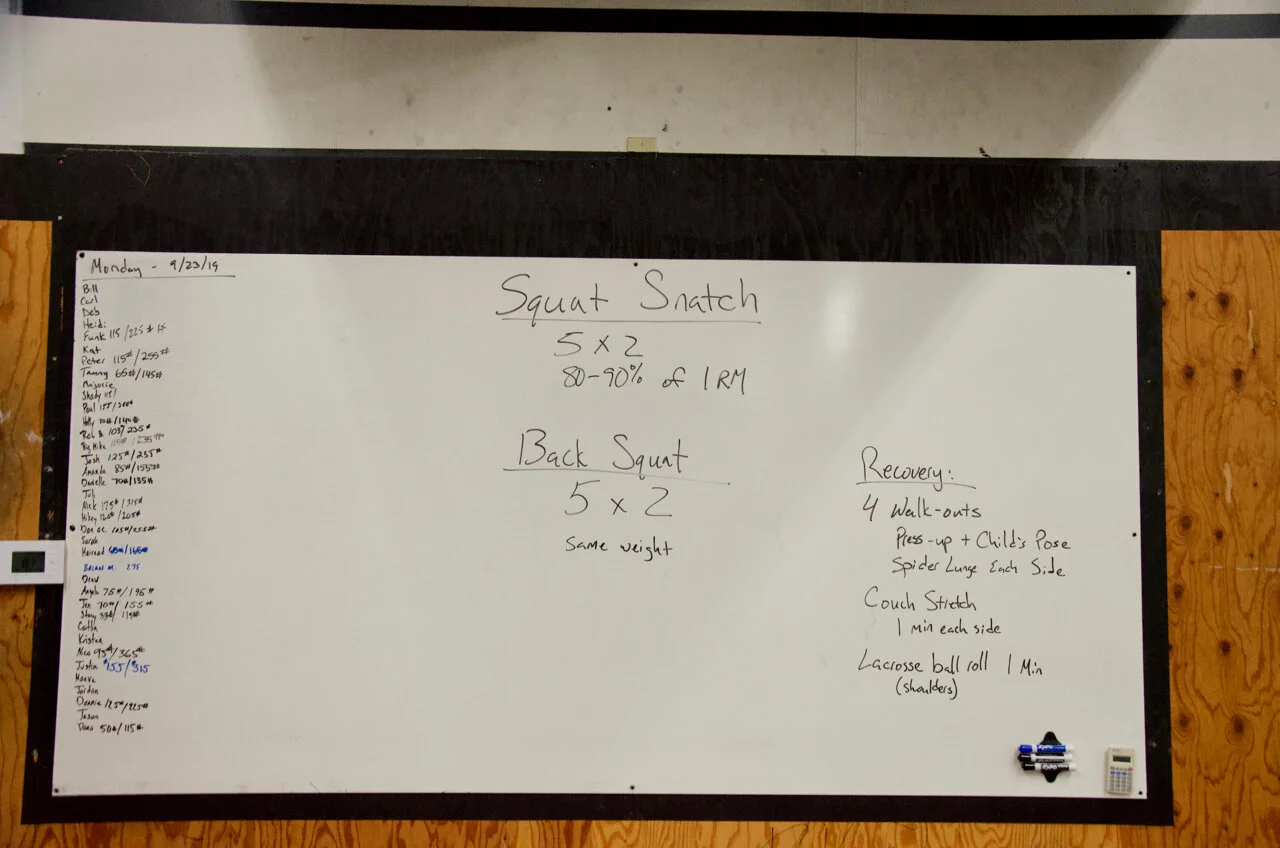 Monday - 9/23/19
Bill
Carl
Deb
Heidi
Funk 115/225#
Kat
Peter 115#/255#
Tammy 65#/145#
Marjorie
Shady 115
Paul 155/
Holly 70#/140#
Rob B. 103/235#
Big Mike 115#/235
Josh 125#/235#
Amanda 85#/155#
Danielle 70#/135#
Juli
Nick 175#/315#
Mikey 120#/205#
Sarah
Mairead 65#/165#
BRIAN M. 275
Drew
Angela 75#/195#
Jen 70#/155#
Caitlin
Kristen
Nico 95#/365#
Justin #155/#315
Maeve
Jordan
Donnie 125#/225#
Jason
50#/115#
Squat Snatch
5 x 2
80-90% of 1RM
Back Squat
5 x 2
same weight
Recovery:
4 Walk-outs
Press-up + Child's Pose
Spider Lunge Each Side
Couch Stretch
1 Min each side
Lacrosse ball roll 1 Min
(shoulders)
EXPO
EXPO